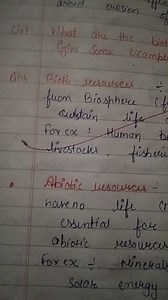 avoid erosion
(ii) What are the biot
Give Some example
Ans Biotic resources :-
from Biosphere (
sustain life
for ex :- Human b
livestocks, fisheri
• Abiotic resources -
have no life (
essential for
abiotic resources
for ex :- Minerals
Solar energy